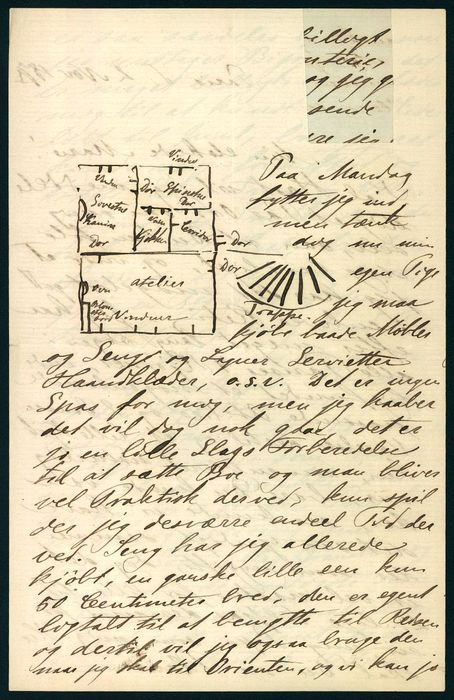 billigt
og jeg
sende
Paa Mandag
flytter jeg ind,
men tænk
dog nu min
egen Pige
jeg maa
kjøbe baade Møbler
og Senge og Lagner Servietter
Haandklæder, o.s.v. Det er ingen
Spas for mig, men jeg haaber
det vil dog nok gaa, det er
jo en lille Slags Forberedelse
til at sætte Bo og man bliver
vel Praktisk derved, kun spil
der jeg desværre endeel Tid der
ved. Seng har jeg allerede
kjøbt, en ganske lille een kun
50 Centimeter bred, den er egent
til at benytte til Reisen
og dertil vil jeg ogsaa bruge den
naar jeg skal til Orienten, og vi kan jo
Vindue
Vindue
Dør
Spisestue
Dør
Sovestue
Kamin
Dør
Kjøkken
Corridor
Dør
Dør
atelier
Ovn
Vinduer
Trappe